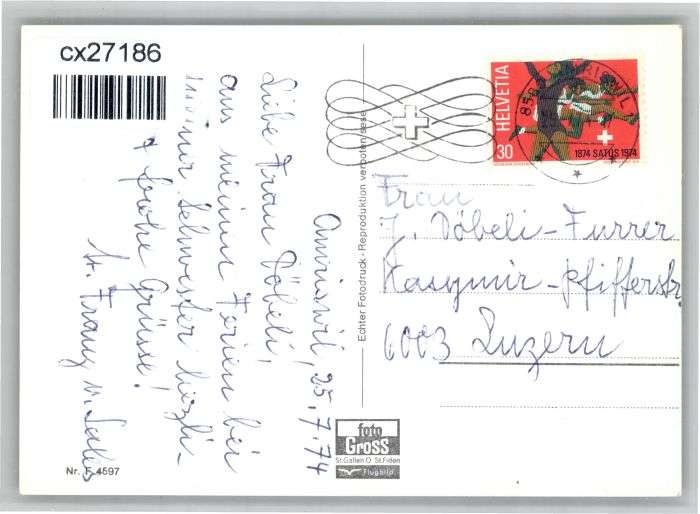 cx27186
Amriswil, 25.7.74
Liebe Frau Döbeli,
aus meinen Ferien bei
meiner Schwester herzli-
& frohe Grüsse!
Sr. Franz v. Sales
HELVETIA
30
1874 SATUS 1974
Echter Fotodruck - Reproduktion verboten/sesa
Frau
J. Döbeli-Furrer
Kasymir-Pfifferstr
6003 Luzern
foto
Gross
St. Gallen O St. Fiden
Flugbild
Nr. F 4597